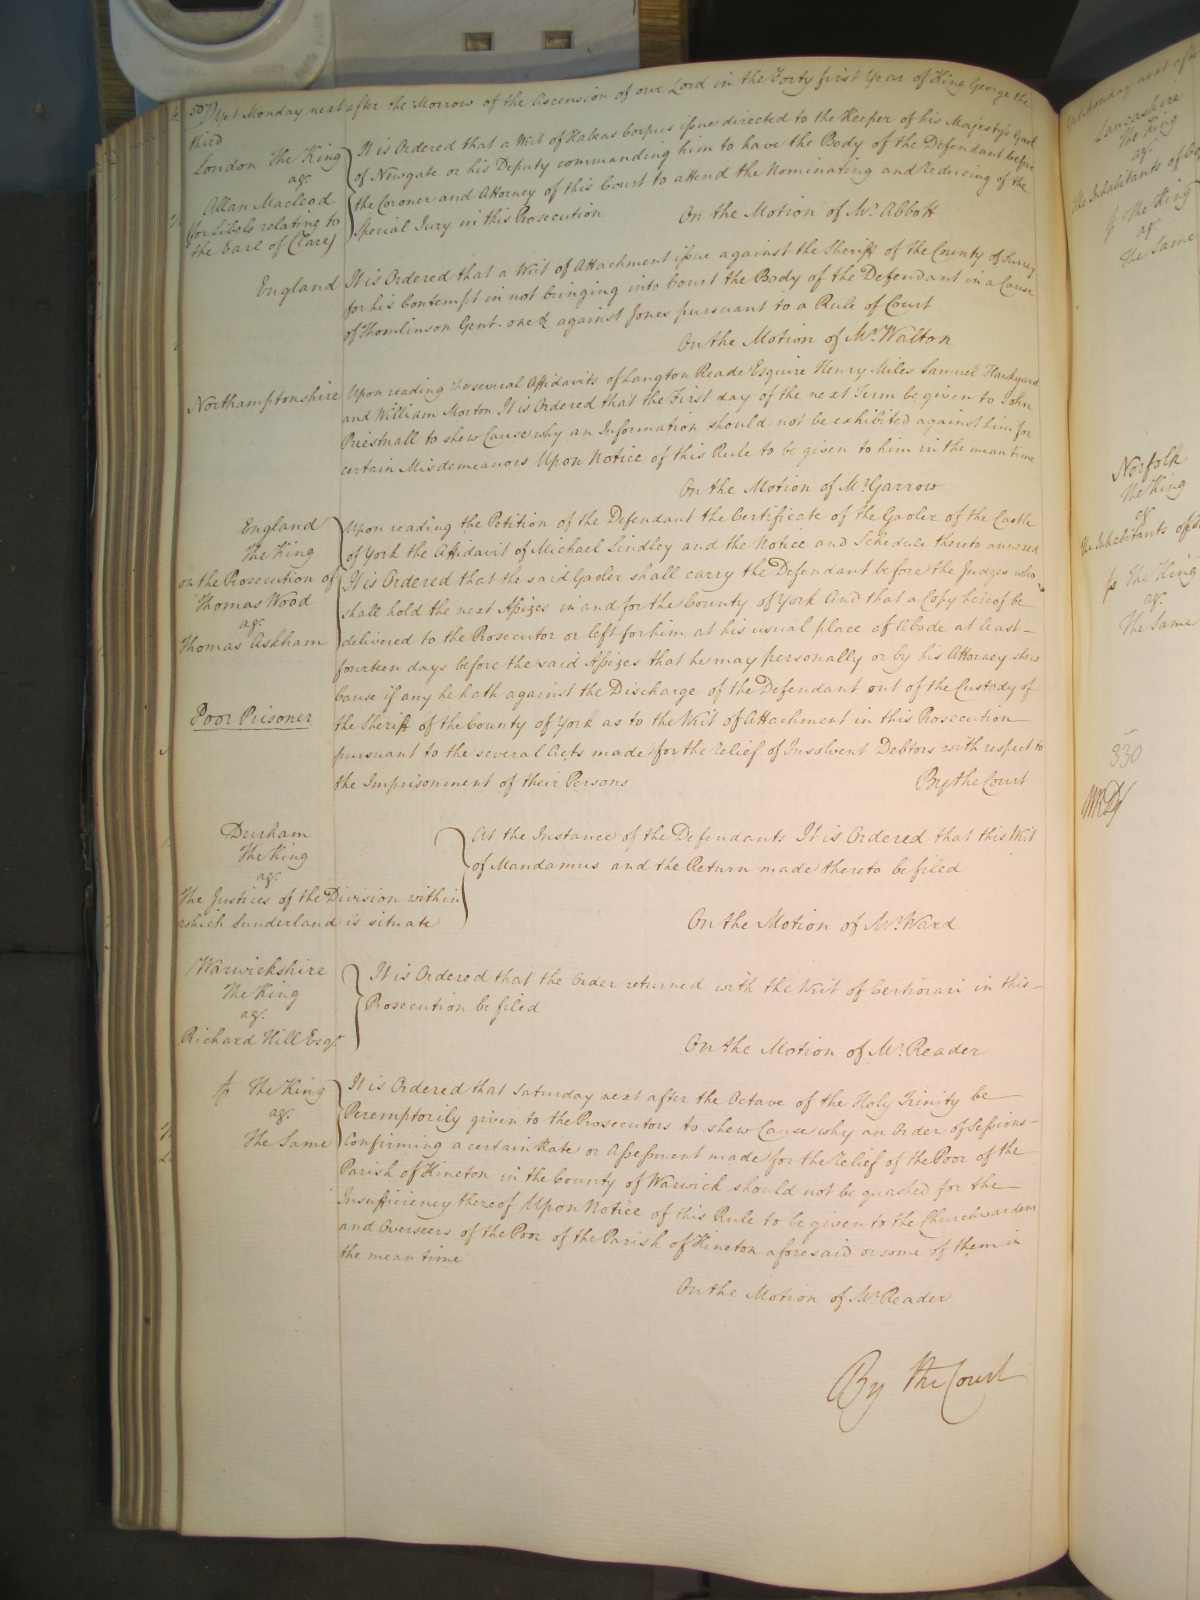 507) Yet Monday next after the Morrow of the Ascension of our Lord in the Forty first Year of King George the
third
London The King
agt.
Allan Macleod
(for Libels relating to
the Earl of Clare)
It is Ordered that a Writ of Habeas Corpus issue directed to the Keeper of his Majesty's Gaol
of Newgate or his Deputy commanding him to have the Body of the Defendant before
the Coroner and Attorney of this Court to attend the Nominating and Reducing of the
Special Jury in this Prosecution
On the Motion of Mr. Abbott
England
It is Ordered that a Writ of Attachment issue against the Sheriff of the County of Surrey
for his Contempt in not bringing into Court the Body of the Defendant in a Cause
of Thomlinson Gent. one &c against Jones pursuant to a Rule of Court
On the Motion of Mr. Walton
Northamptonshire
Upon reading the several Affidavits of Langton Reade Esquire Henry Miles Samuel
and William Morton It is Ordered that the First day of the next Term be given to John
Priestnall to shew Cause why an Information should not be exhibited against him for
certain Misdemeanors Upon Notice of this Rule to be given to him in the mean time
On the Motion of Mr. Garrow
England
The King
on the Prosecution of
Thomas Wood
agt.
Thomas Askham
Poor Prisoner
Upon reading the Petition of the Defendant the Certificate of the Gaoler of the Castle
of York the Affidavit of Michael Lindley and the Notice and Schedule thereto annexed
It is Ordered that the said Gaoler shall carry the Defendant before the Judges who
shall hold the next Assizes in and for the County of York And that a Copy hereof be
delivered to the Prosecutor or left for him at his usual place of Abode at least
fourteen days before the said Assizes that he may personally or by his Attorney shew
Cause if any he hath against the Discharge of the Defendant out of the Custody of
the Sheriff of the County of York as to the Writ of Attachment in this Prosecution
pursuant to the several Acts made for the relief of Insolvent Debtors with respect to
the Imprisonment of their Persons
By the Court
Durham
The King
agt.
The Justices of the Division within
which Sunderland is situate
At the Instance of the Defendants It is Ordered that this Writ
of Mandamus and the Return made thereto be filed
On the Motion of Mr. Ward
Warwickshire
The King
agt.
Richard Hill Esqr.
It is Ordered that the Order returned with the Writ of Certiorari in this
Prosecution be filed
On the Motion of Mr. Reader
The King
agt.
The Same
It is Ordered that Saturday next after the Octave of the Holy Trinity be
Peremptorily given to the Prosecutors to shew Cause why an Order of Sessions
Confirming a certain Rate or Assessment made for the relief of the Poor of the
Parish of Kineton in the County of Warwick should not be quashed for the
Insufficiency thereof Upon Notice of this Rule to be given to the Churchwardens
and Overseers of the Poor of the Parish of Kineton aforesaid or some of them in
the mean time
On the Motion of Mr. Reader
By the Court
Yet Monday next after
Lancashire
The King
agt.
The Inhabitants of
The King
agt.
The Same
Norfolk
The King
agt.
The Inhabitants of
The King
agt.
The Same
330